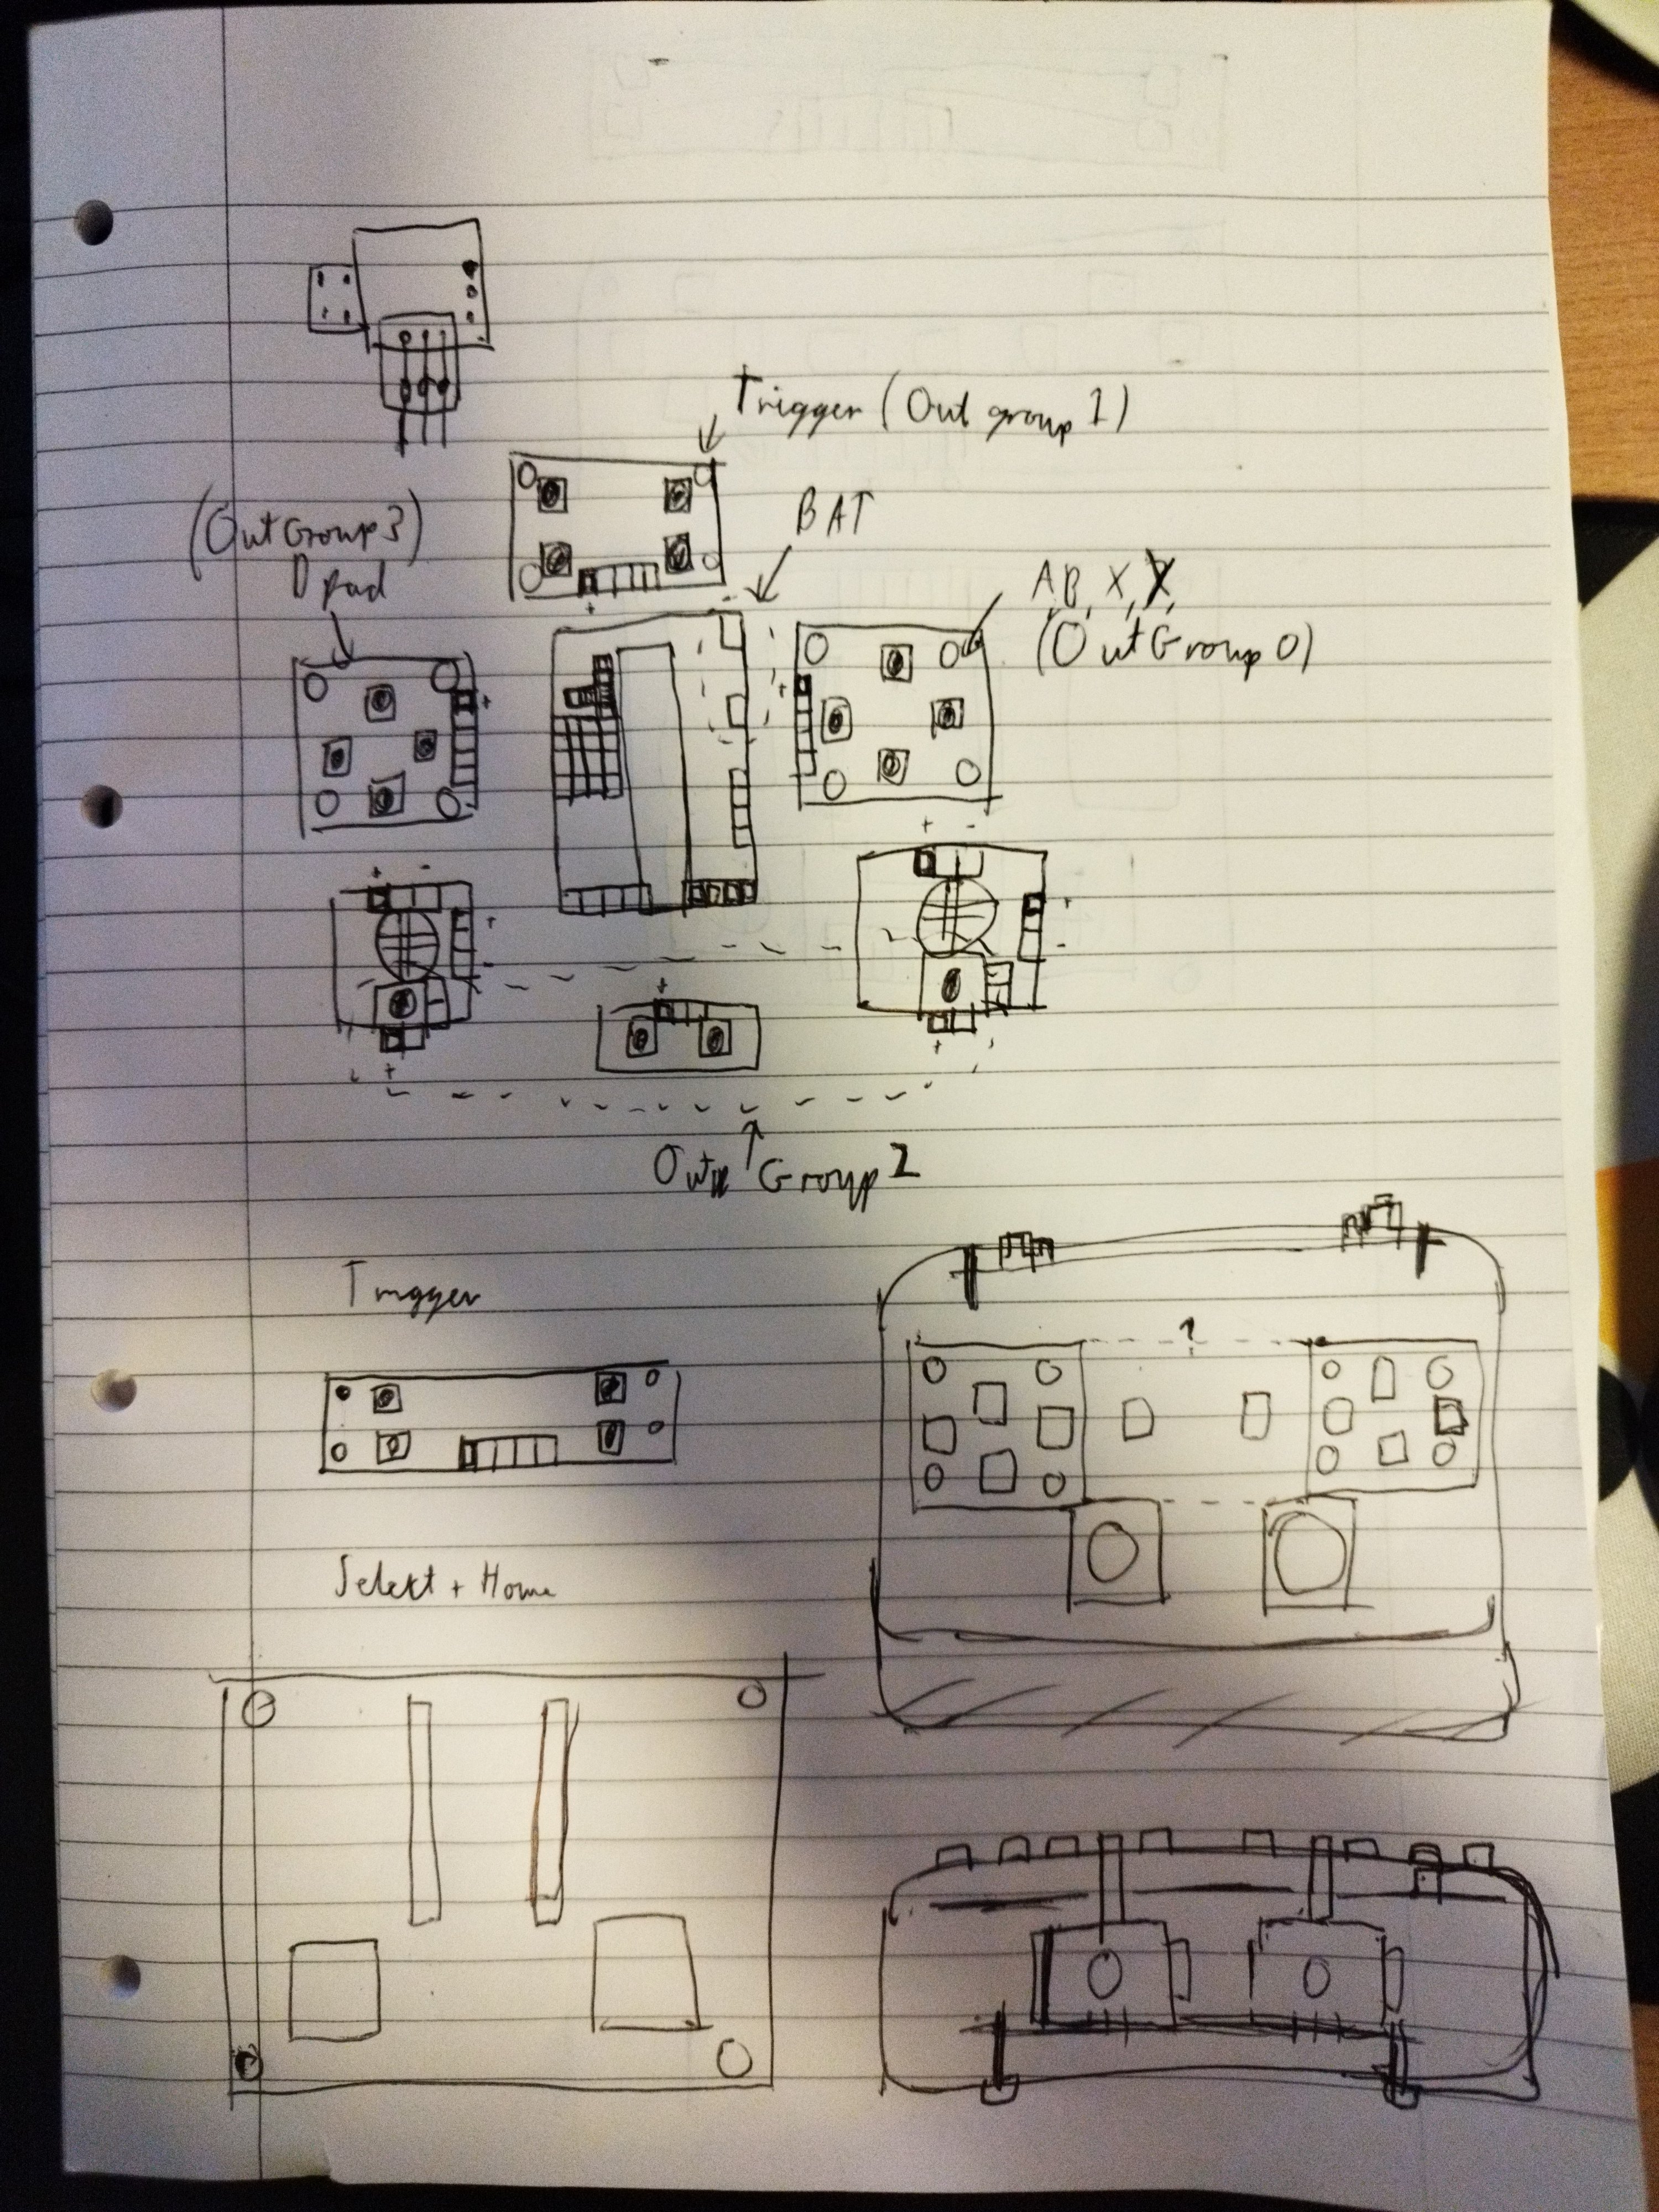 Trigger (Out group 1)
BAT
(Out Group 3)
D pad
A, B, X, Y,
(Out Group 0)
Out Group 2
Trigger
?
Select + Home